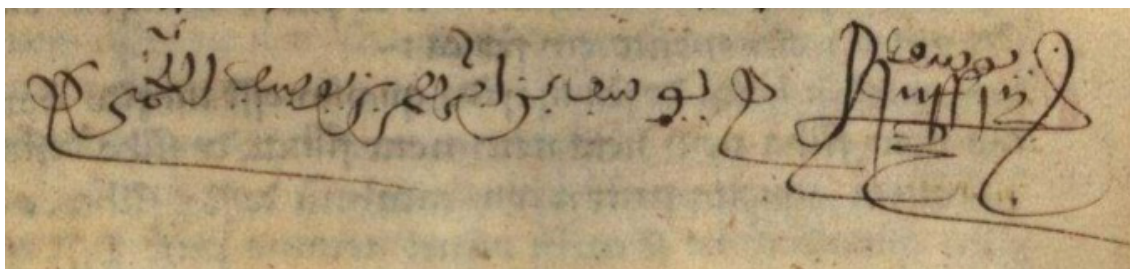 يوسف
يوسف بن ابرهيم بن يوسف اللخمي